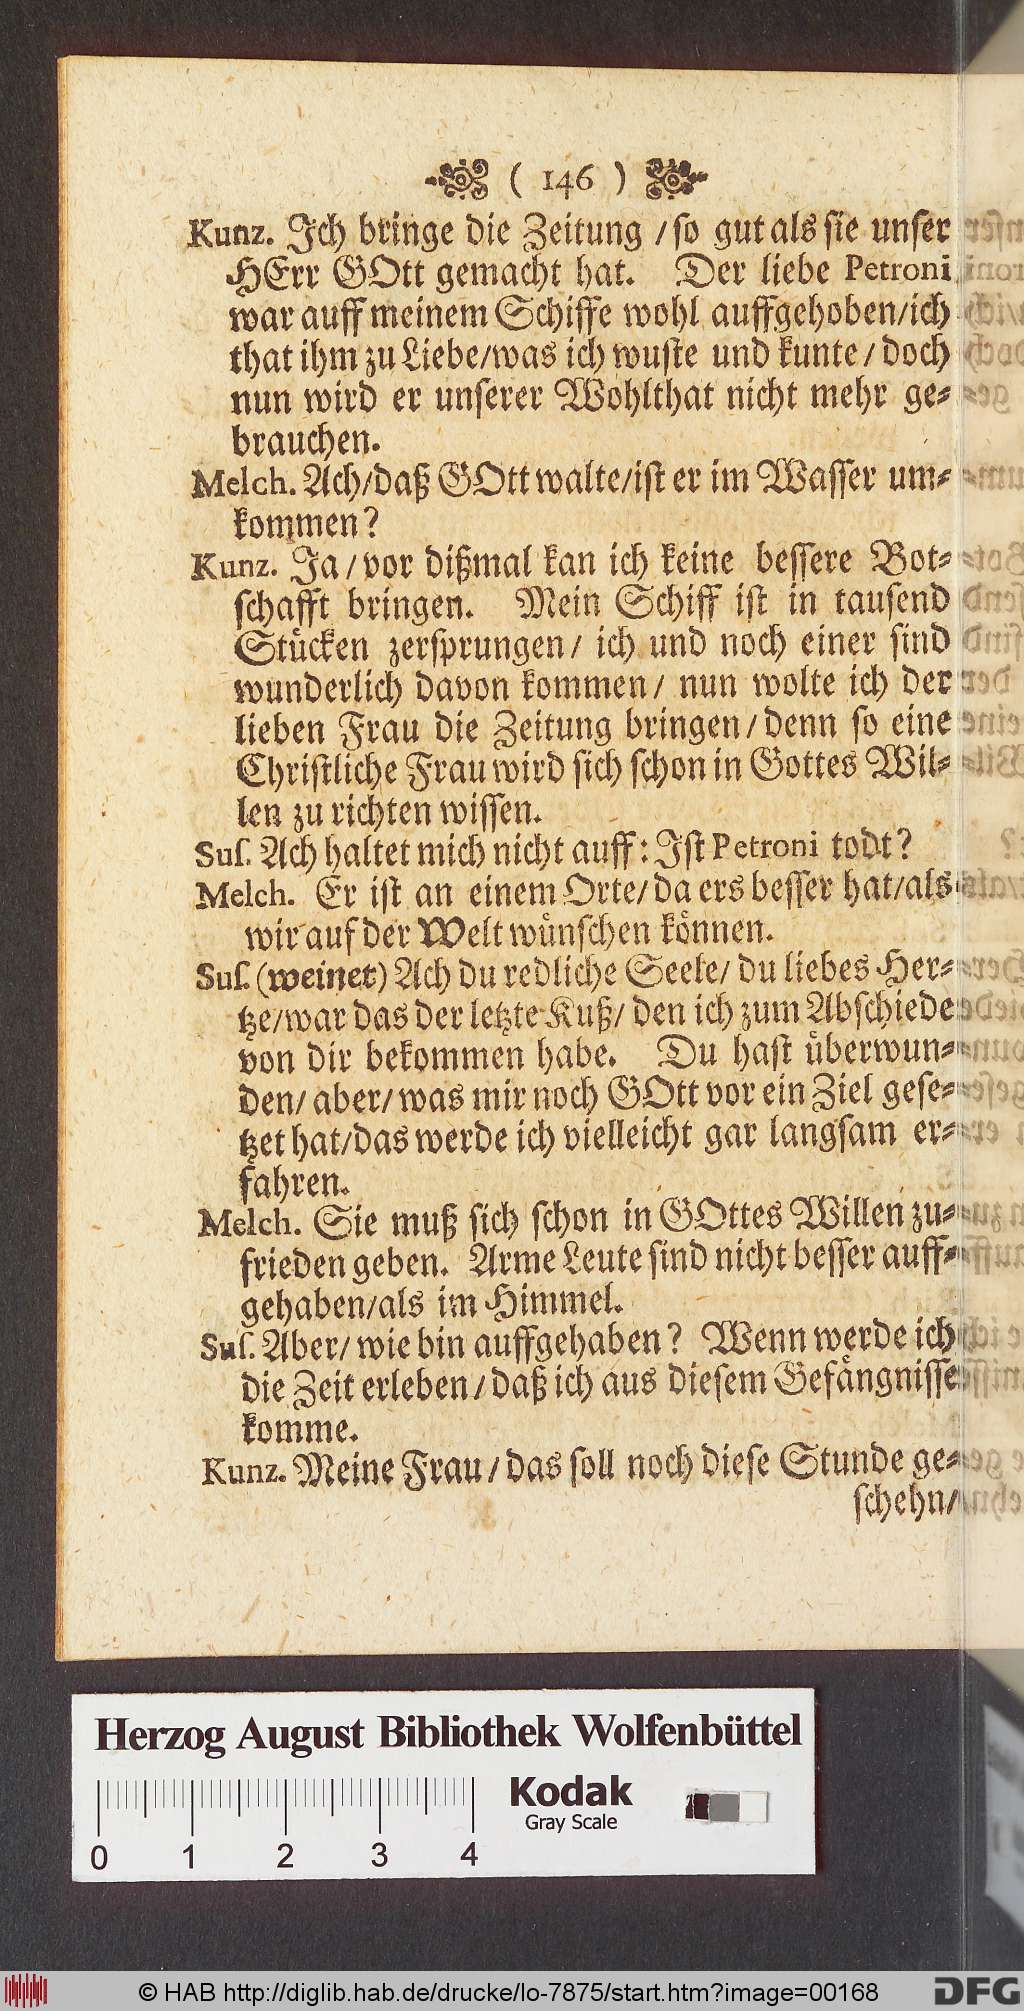 ( 146 )
Kunz. Ich bringe die Zeitung / so gut als sie unser
HErr GOtt gemacht hat. Der liebe Petroni
war auff meinem Schiffe wohl auffgehoben/ich
that ihm zu Liebe/was ich wuste und kunte/ doch
nun wird er unserer Wohlthat nicht mehr ge-
brauchen.
Melch. Ach/daß GOtt walte/ist er im Wasser um-
kommen?
Kunz. Ja / vor dißmal kan ich keine bessere Bot-
schafft bringen. Mein Schiff ist in tausend
Stücken zersprungen/ ich und noch einer sind
wunderlich davon kommen/ nun wolte ich der
lieben Frau die Zeitung bringen/denn so eine
Christliche Frau wird sich schon in Gottes Wil-
len zu richten wissen.
Sus. Ach haltet mich nicht auff: Ist Petroni todt?
Melch. Er ist an einem Orte/ da ers besser hat/als
wir auf der Welt wünschen können.
Sus. (weinet) Ach du redliche Seele/ du liebes Her-
tze/war das der letzte Kuß/ den ich zum Abschiede
von dir bekommen habe. Du hast überwun-
den/ aber/ was mir noch GOtt vor ein Ziel gese-
tzet hat/das werde ich vielleicht gar langsam er-
fahren.
Melch. Sie muß sich schon in GOttes Willen zu-
frieden geben. Arme Leute sind nicht besser auff-
gehaben/als im Himmel.
Sus. Aber/ wie bin auffgehaben? Wenn werde ich
die Zeit erleben/ daß ich aus diesem Gefängnisse
komme.
Kunz. Meine Frau / das soll noch diese Stunde ge-
schehn/
Herzog August Bibliothek Wolfenbüttel
Kodak
Gray Scale
0 1 2 3 4
© HAB http://diglib.hab.de/drucke/lo-7875/start.htm?image=00168
DFG